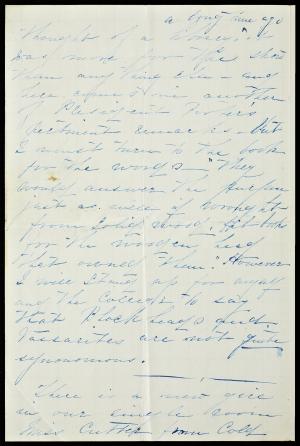 a long time ago
thought of a
was more for the show
than any thing else - and
here comes in another
of President
remarks. But
I must turn to the book
for the words - "They
would answer the purpose
just as well if wrought
from solid wood, fit books
for the wooden head
that owned them." However
I will stand up for myself
and the College to say
that Blockheads and
Vassarites are not quite
synonomous.
There is a new girl
in our single room
Miss from